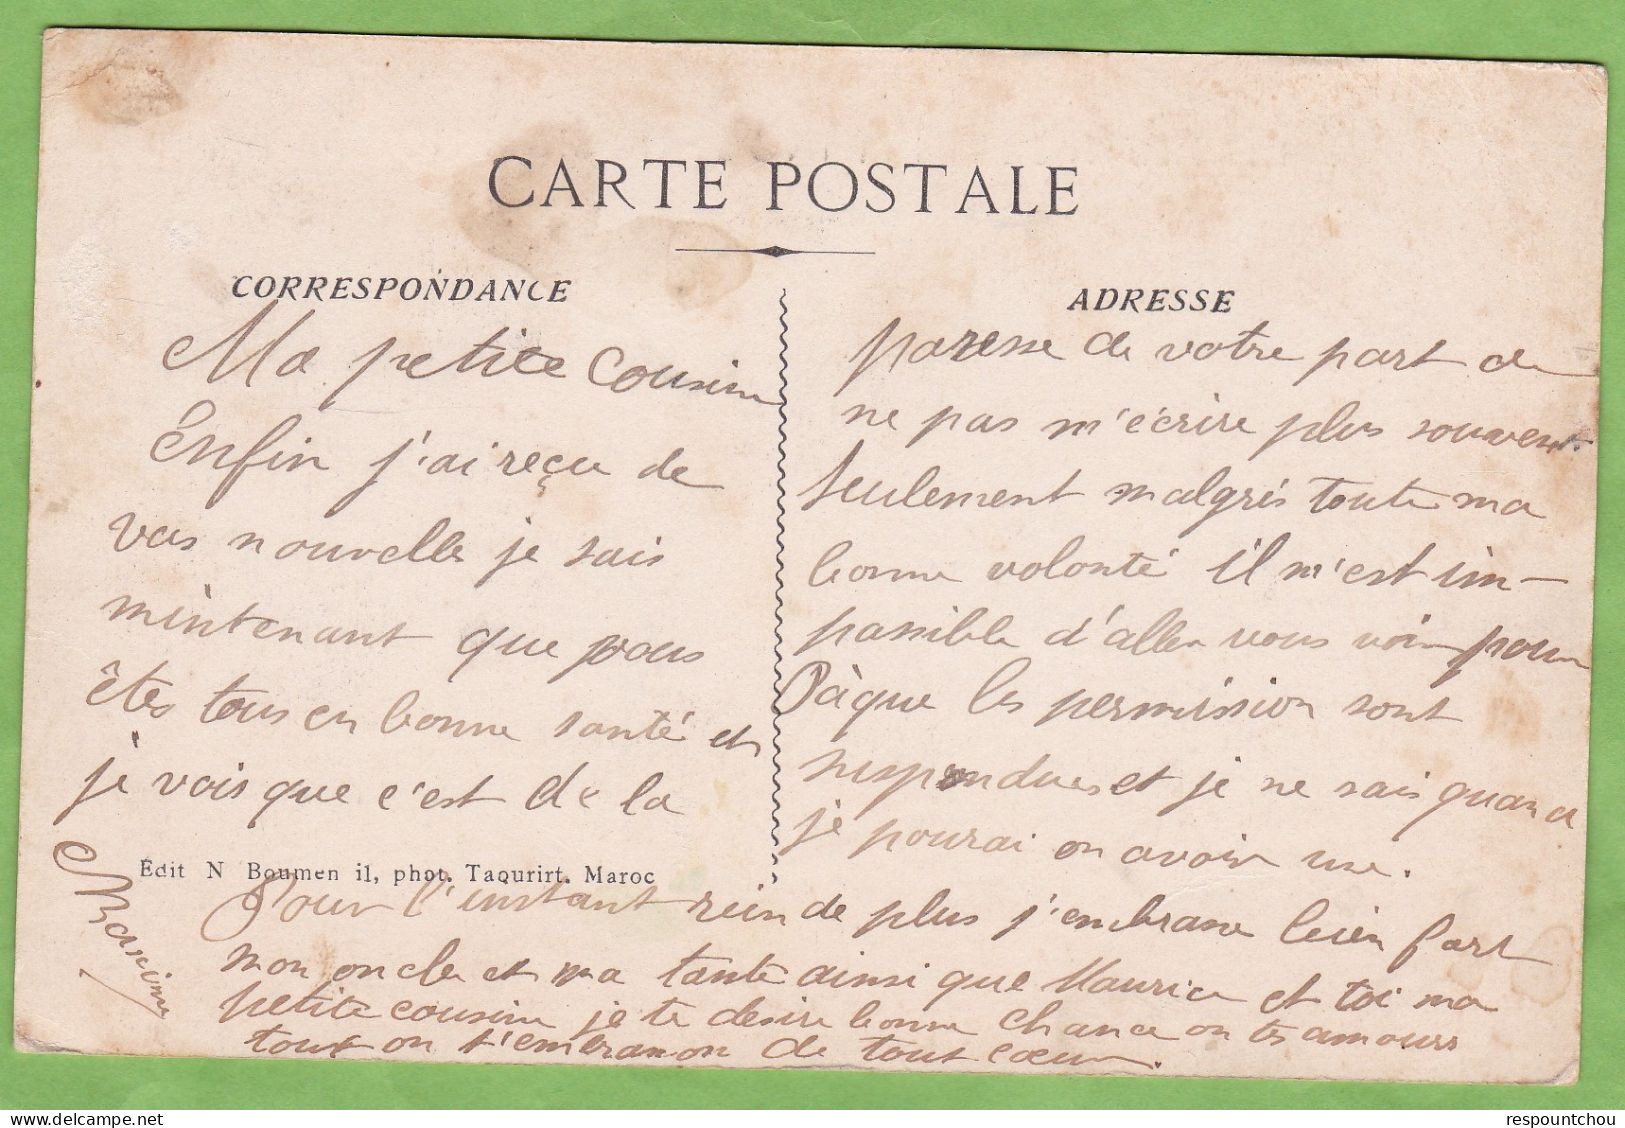 CARTE POSTALE
CORRESPONDANCE
Ma petite cousine
Enfin j'ai reçu de
vos nouvelle je sais
mintenant que vous
êtes tous en bonne santé et
je vois que c'est de la
ADRESSE
paresse de votre part de
ne pas m'écrire plus souvent
seulement malgrés toute ma
bonne volonté il m'est im-
possible d'aller vous voir pour
Pâque les permission sont
suspendues et je ne sais quand
je pourai en avoir une.
Édit N Boumen il, phot. Taourirt. Maroc
Pour l'instant rein de plus j'embrasse bien fort
mon oncle et ma tante ainsi que Maurice et toi ma
petite cousine je te desire bonne chance en tes amours
tout en t'embrassan de tout cœur.
respountchou